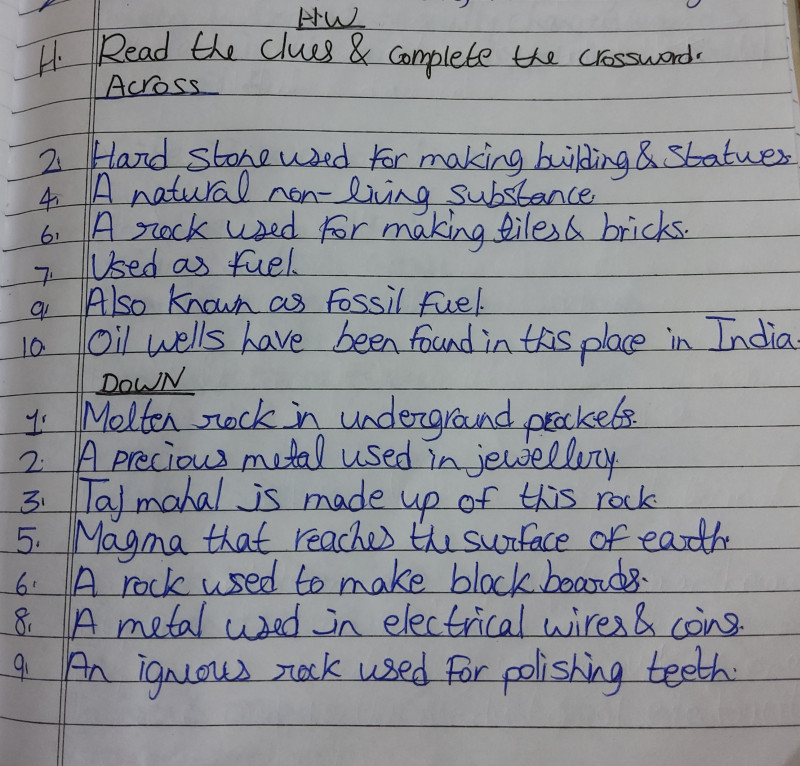 H.W
H. Read the clues & complete the crossword.
Across
2. Hard stone used for making building & statues
4. A natural non-living substance.
6. A rock used for making tiles & bricks.
7. Used as fuel.
9. Also known as fossil fuel.
10. Oil wells have been found in this place in India.
DOWN
1. Molten rock in underground pockets.
2. A precious metal used in jewellery.
3. Taj mahal is made up of this rock.
5. Magma that reaches the surface of earth.
6. A rock used to make black boards.
8. A metal used in electrical wires & coins.
9. An igneous rock used for polishing teeth.